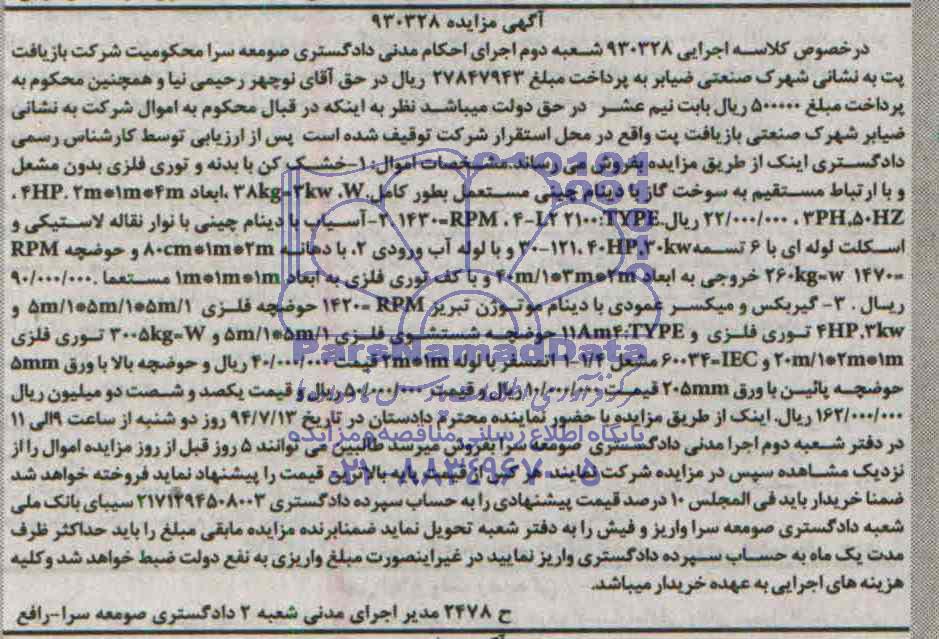 آگهی مزایده ۹۳۰۳۲۸
درخصوص کلاسه اجرایی ۹۳۰۳۲۸ شعبه دوم اجرای احکام مدنی دادگستری صومعه سرا محکومیت شرکت بازیافت
پت به نشانی شهرک صنعتی ضیابر به پرداخت مبلغ ۲۷۸۴۷۹۴۳ ریال در حق آقای نوچهر رحیمی نیا و همچنین محکوم به
پرداخت مبلغ ۵۰۰۰۰۰ ریال بابت نیم عشر در حق دولت میباشد نظر به اینکه در قبال محکوم به اموال شرکت به نشانی
ضیابر شهرک صنعتی بازیافت پت واقع در محل استقرار شرکت توقیف شده است پس از ارزیابی توسط کارشناس رسمی
دادگستری اینک از طریق مزایده بفروش می رساند.مشخصات اموال: ۱-خشک کن با بدنه و توری فلزی بدون مشعل
و با ارتباط مستقیم به سوخت گاز با دینام چینی مستعمل بطور کامل.۳۸kg=۳kw .W ،ابعاد ۴HP. ۲m*۱m*۴m ،
۳PH.۵۰HZ ، ۲۲/۰۰۰/۰۰۰ ریال.۴-L۲ ۲۱۰۰:TYPE ، ۱۴۳۰=RPM ۲-آسیاب با دینام چینی با نوار نقاله لاستیکی و
اسکلت لوله ای با ۶ تسمه ۳۰-۱۲۱،۴۰HP،۳۰kw و با لوله آب ورودی ۲، با دهانه ۸۰cm*۱m*۲m و حوضچه RPM
=۱۴۷۰ ۲۶۰kg=w خروجی به ابعاد ۴۰m/۱*۳m*۲m و با کف توری فلزی به ابعاد ۱m*۱m*۱m مستعما .۹۰/۰۰۰/۰۰۰
ریال . ۳- گیربکس و میکسر عمودی با دینام موتوژن تبریز ۱۴۲۰= RPM حوضچه فلزی ۵m/۱*۵m/۱*۵m/۱ و
۴HP،۳kw توری فلزی و ۱۱Am۴:TYPE حوضچه شستشوی فلزی ۵m/۱*۵m/۱ و ۳۰۰۵kg=W توری فلزی
۲۰m/۱*۲m*۱m و ۶۰۰۳۴=IEC مشعل ۱-۰۱/۴ اتمسفر با لوله ۲m*۱m قیمت ۴۰/۰۰۰/۰۰۰ ریال و حوضچه بالا با ورق ۵mm
حوضچه پائین با ورق ۲۰۵mm قیمت ۱۰/۰۰۰/۰۰۰ ریال و قیمت ۵۰/۰۰۰/۰۰۰ ریال و قیمت یکصد و شصت دو میلیون ریال
۱۶۲/۰۰۰/۰۰۰ ریال. اینک از طریق مزایده با حضور نماینده محترم دادستان در تاریخ ۹۴/۷/۱۳ روز دو شنبه از ساعت ۹الی ۱۱
در دفتر شعبه دوم اجرا مدنی دادگستری صومعه سرا بفروش میرسد طالبین می توانند ۵ روز قبل از روز مزایده اموال را از
نزدیک مشاهده سپس در مزایده شرکت نمایند هر کس از قیمت پایه بالاترین قیمت را پیشنهاد نماید فروخته خواهد شد
ضمنا خریدار باید فی المجلس ۱۰ درصد قیمت پیشنهادی را به حساب سپرده دادگستری ۲۱۷۱۲۹۴۵۰۸۰۰۳ سیبای بانک ملی
شعبه دادگستری صومعه سرا واریز و فیش را به دفتر شعبه تحویل نماید ضمنابرنده مزایده مابقی مبلغ را باید حداکثر ظرف
مدت یک ماه به حساب سپرده دادگستری واریز نمایید در غیراینصورت مبلغ واریزی به نفع دولت ضبط خواهد شد وکلیه
هزینه های اجرایی به عهده خریدار میباشد.
ح ۲۴۷۸ مدیر اجرای مدنی شعبه ۲ دادگستری صومعه سرا-رافع
ParsNamadData
پایگاه اطلاع رسانی مناقصه و مزایده
۰۲۱-۸۸۳۴۹۶۷۰-۵